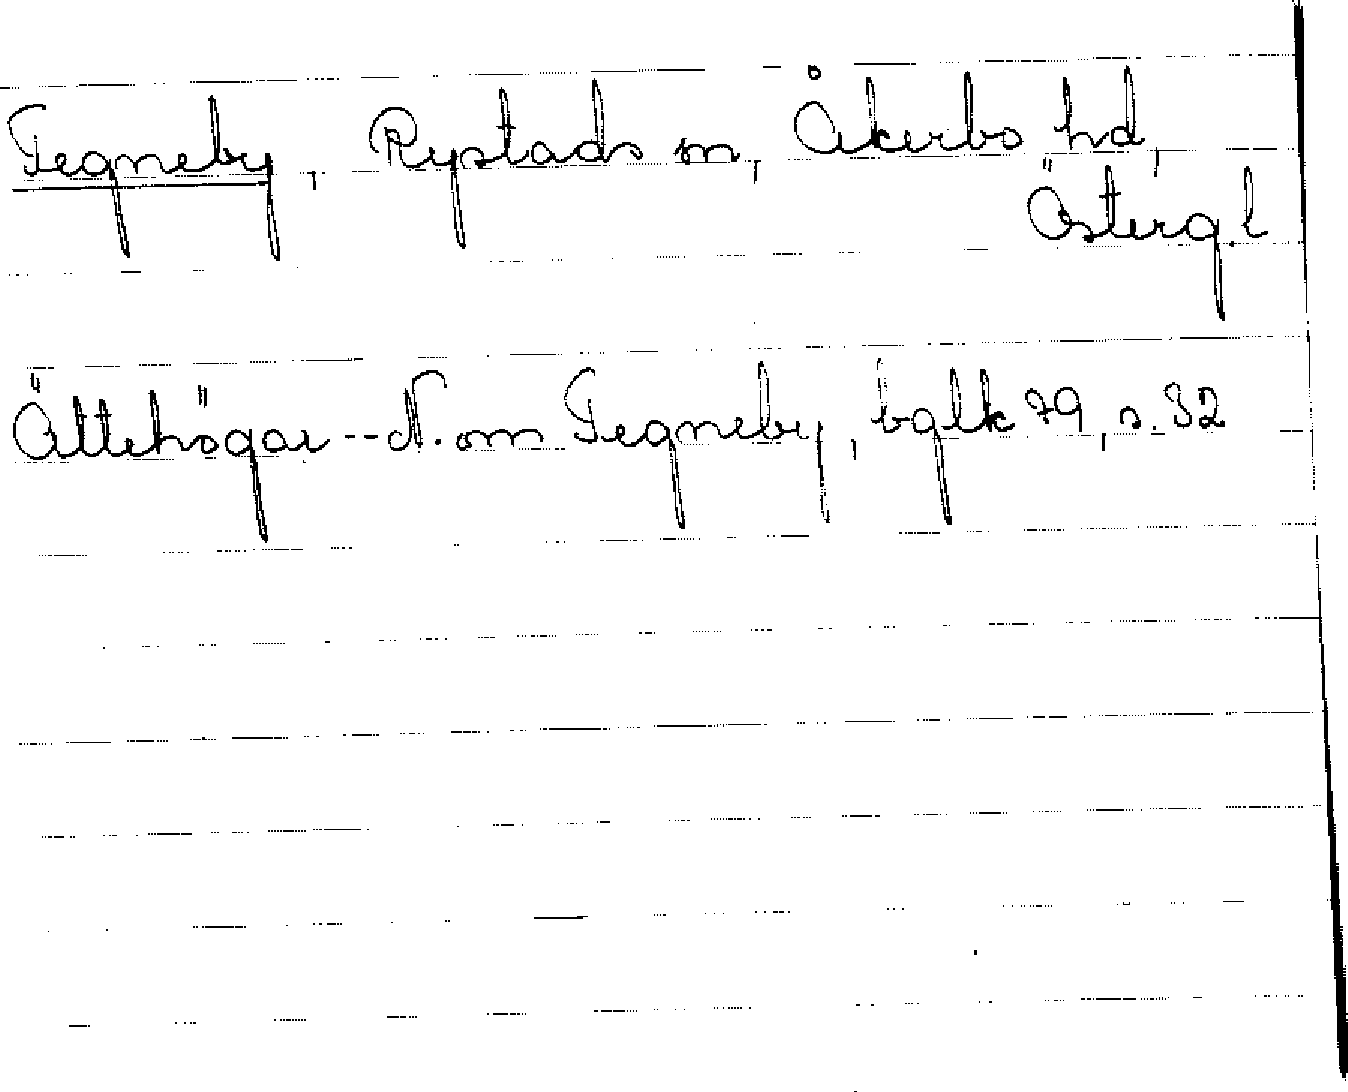 Tegneby, Rystads sn, Åkerbo hd,
Österg.l
Ättehögar -- N. om Tegneby, bglk 79, s. 32